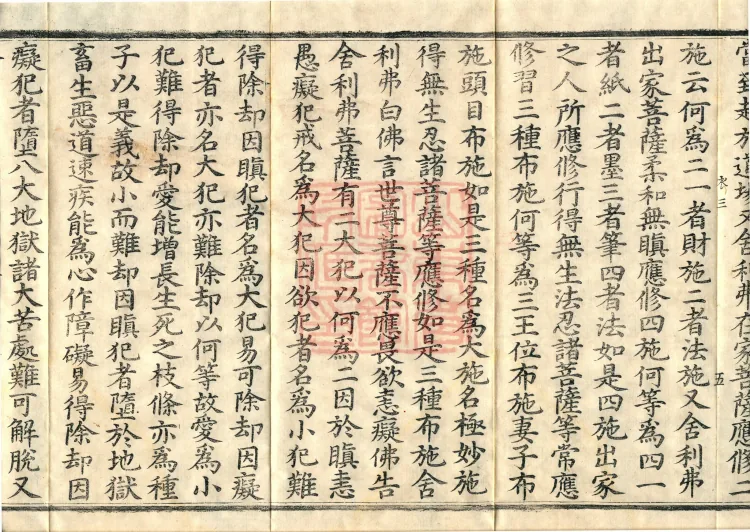 道場又舍利弗在家菩薩應修二
五
施云何爲二一者財施二者法施又舍利弗
出家菩薩柔和無瞋應修四施何等爲四一
者紙二者墨三者筆四者法如是四施出家
之人所應修行得無生法忍諸菩薩等常應
修習三種布施何等爲三王位布施妻子布
施頭目布施如是三種名爲大施名極妙施
得無生忍諸菩薩等應修如是三種布施舍
利弗白佛言世尊菩薩不應畏欲恚癡佛告
舍利弗菩薩有二大犯以何爲二因於瞋恚
愚癡犯戒名爲大犯因欲犯者名爲小犯難
得除却因瞋犯者名爲大犯易可除却因癡
犯者亦名大犯亦難除却以何等故愛爲小
犯難得除却愛能增長生死之枝條亦爲種
子以是義故小而難却因瞋犯者墮於地獄
畜生惡道速疾能爲心作障礙易得除却因
癡犯者墮八大地獄諸大苦處難可解脫又